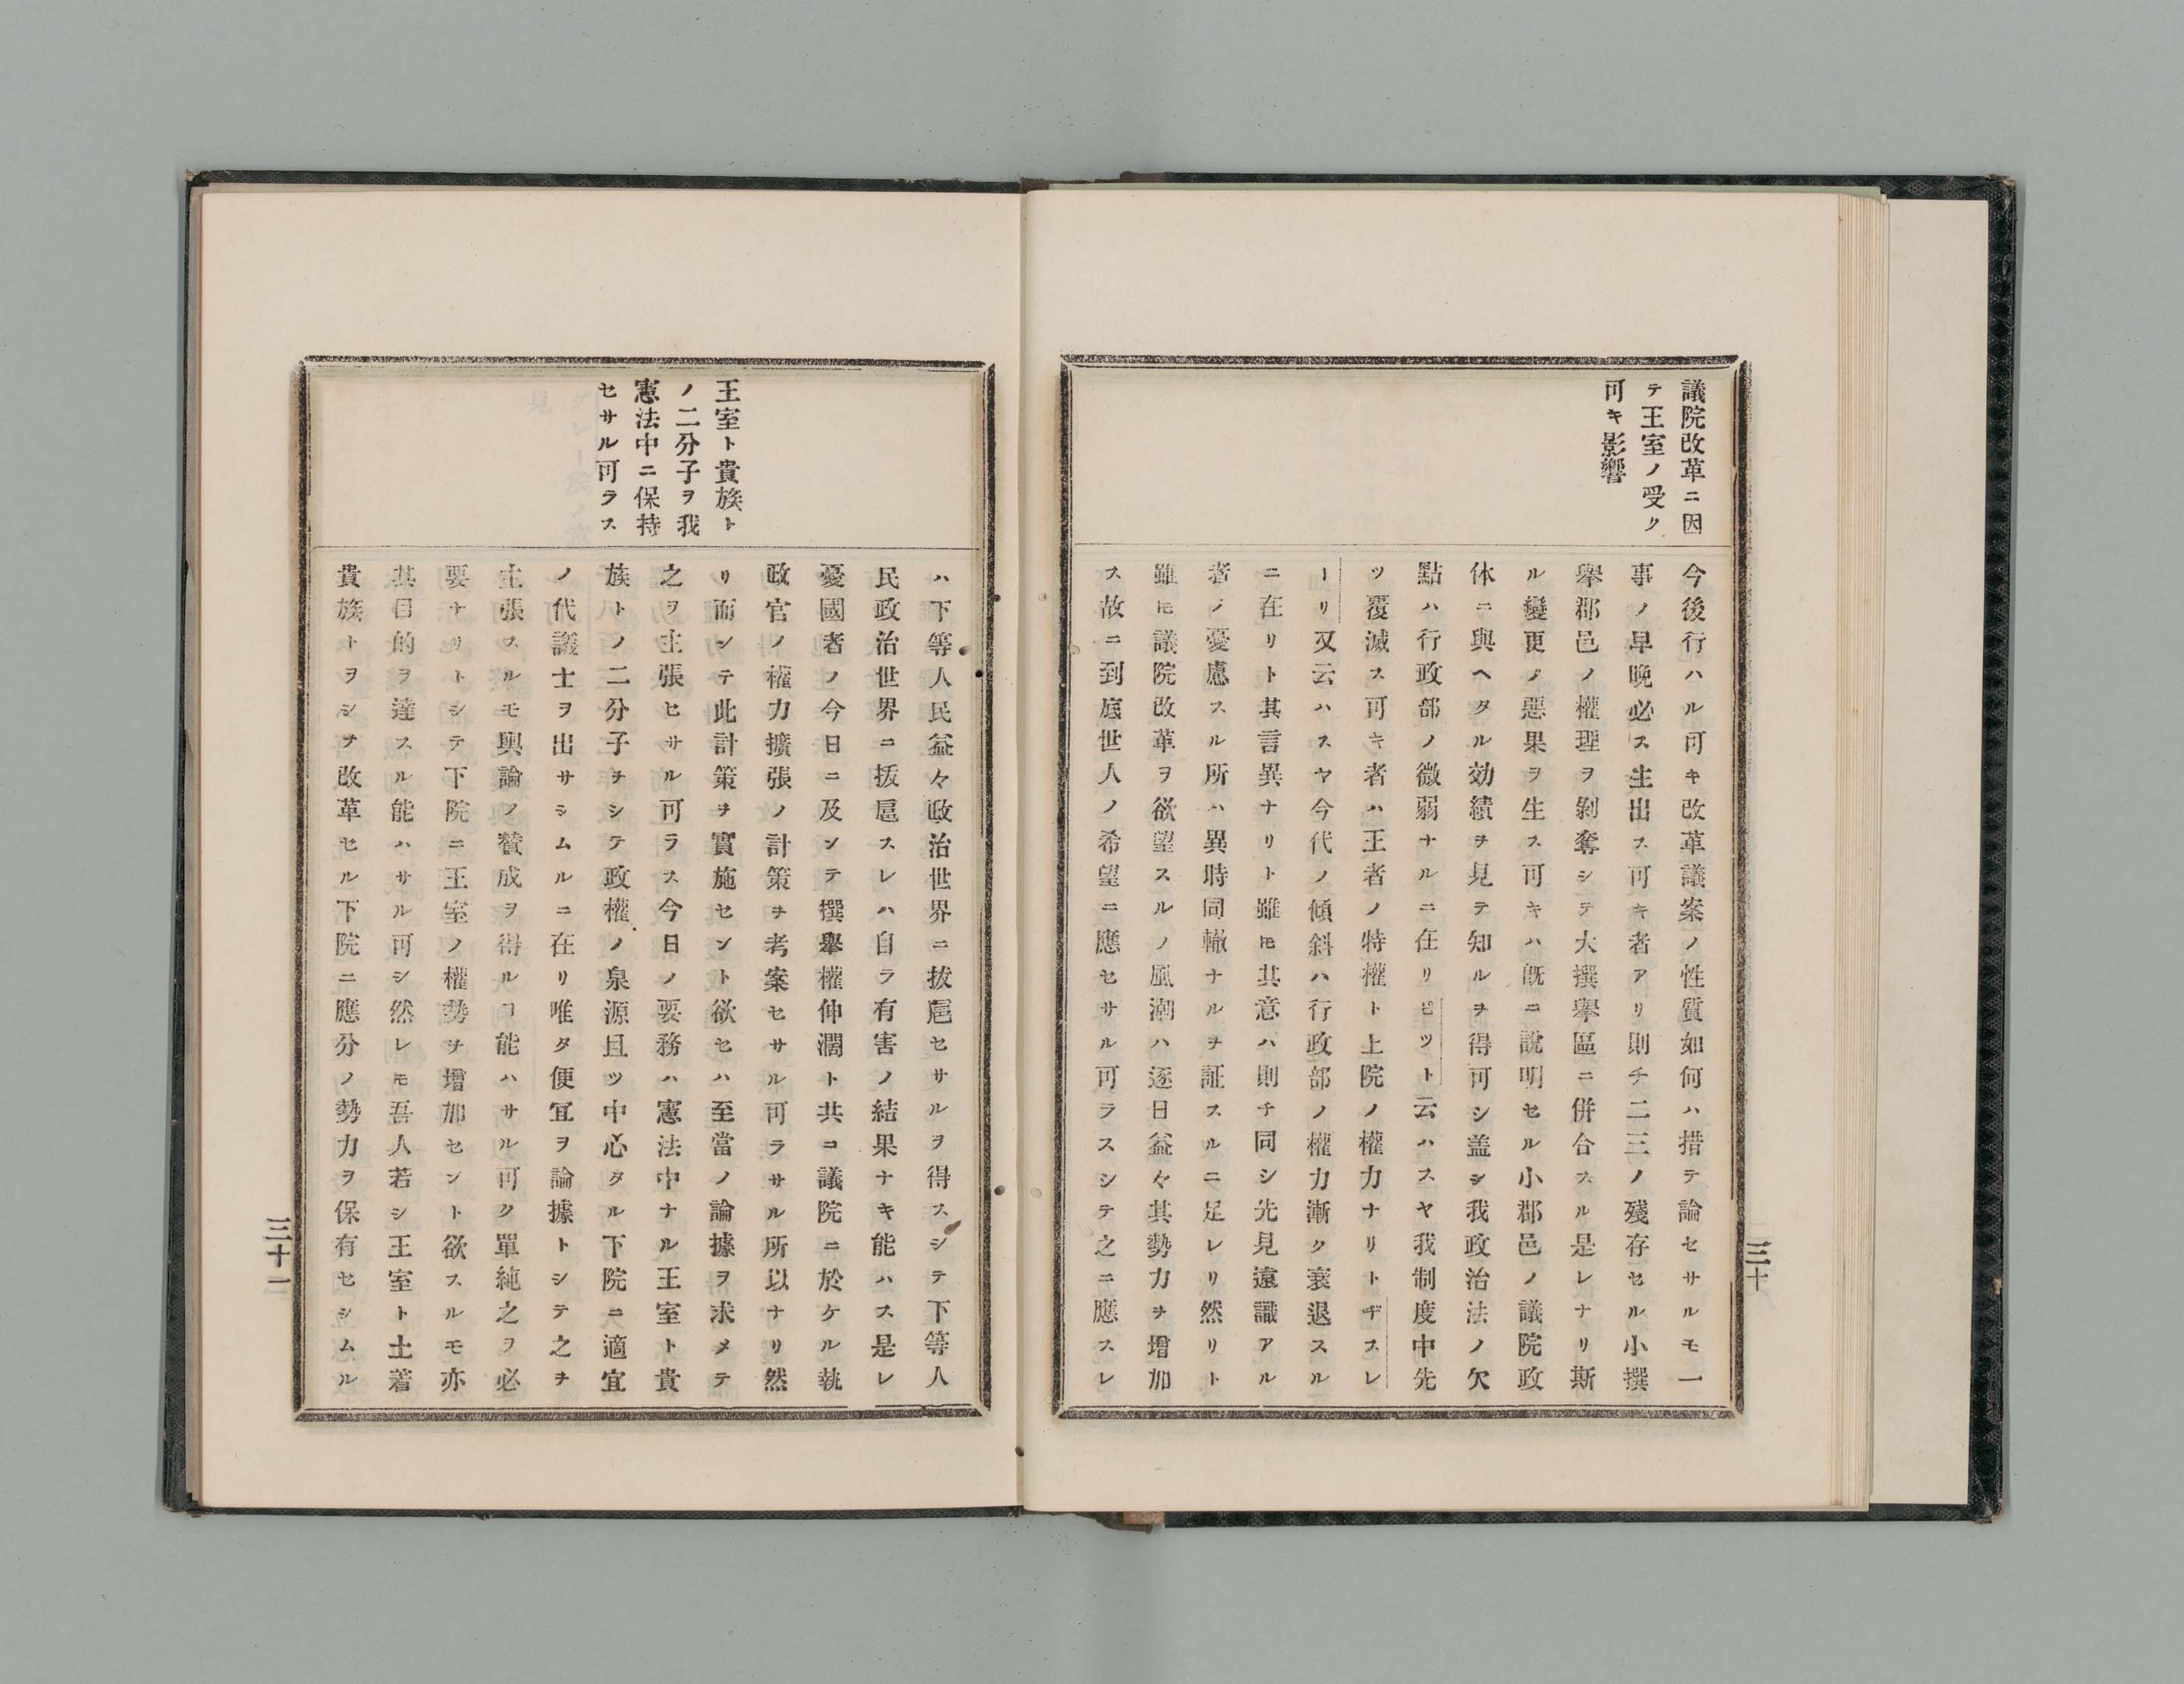 議院改革ニ因
テ王室ノ受ク
可キ影響
今後行ハル可キ改革議案ノ性質如何ハ措テ論セサルモ一
事ノ早晩必ス生出ス可キ者アリ則チ二三ノ殘存セル小撰
擧郡邑ノ權理ヲ剝奪シテ大撰擧區ニ併合スル是レナリ斯
ル變更ノ惡果ヲ生ス可キハ旣ニ說明セル小郡邑ノ議院政
体ニ與ヘタル効績ヲ見テ知ルヲ得可シ盖シ我政治法ノ欠
點ハ行政部ノ微弱ナルニ在リピツト云ハスヤ我制度中先
ツ覆滅ス可キ者ハ王者ノ特權ト上院ノ權力ナリトヂスレ
ーリ又云ハスヤ今代ノ傾斜ハ行政部ノ權力漸ク衰退スル
ニ在リト其言異ナリト雖𪜈其意ハ則チ同シ先見遠識アル
者ノ憂慮スル所ハ異時同轍ナルヲ証スルニ足レリ然リト
雖𪜈議院改革ヲ欲望スルノ風潮ハ逐日益々其勢力ヲ增加
ス故ニ到底世人ノ希望ニ應セサル可ラスシテ之ニ應スレ
三十
王室ト貴族ト
ノ二分子ヲ我
憲法中ニ保持
セサル可ラス
ハ下等人民益々政治世界ニ拔扈セサルヲ得スシテ下等人
民政治世界ニ拔扈スレハ自ラ有害ノ結果ナキ能ハス是レ
憂國者ノ今日ニ及ンテ撰擧權伸濶ト共ニ議院ニ於ケル執
政官ノ權力擴張ノ計策ヲ考案セサル可ラサル所以ナリ然
リ而シテ此計策ヲ實施セント欲セハ至當ノ論據ヲ求メテ
之ヲ主張セサル可ラス今日ノ要務ハ憲法中ナル王室ト貴
族トノ二分子ヲシテ政權ノ泉源且ツ中心タル下院ニ適宜
ノ代議士ヲ出サシムルニ在リ唯タ便宜ヲ論據トシテ之ヲ
主張スルモ輿論ノ賛成ヲ得ルヿ能ハサル可ク單純之ヲ必
要ナリトシテ下院ニ王室ノ權勢ヲ增加セント欲スルモ亦
其目的ヲ達スル能ハサル可シ然レモ吾人若シ王室ト土着
貴族トヲシテ改革セル下院ニ應分ノ勢力ヲ保有セシムル
三十一